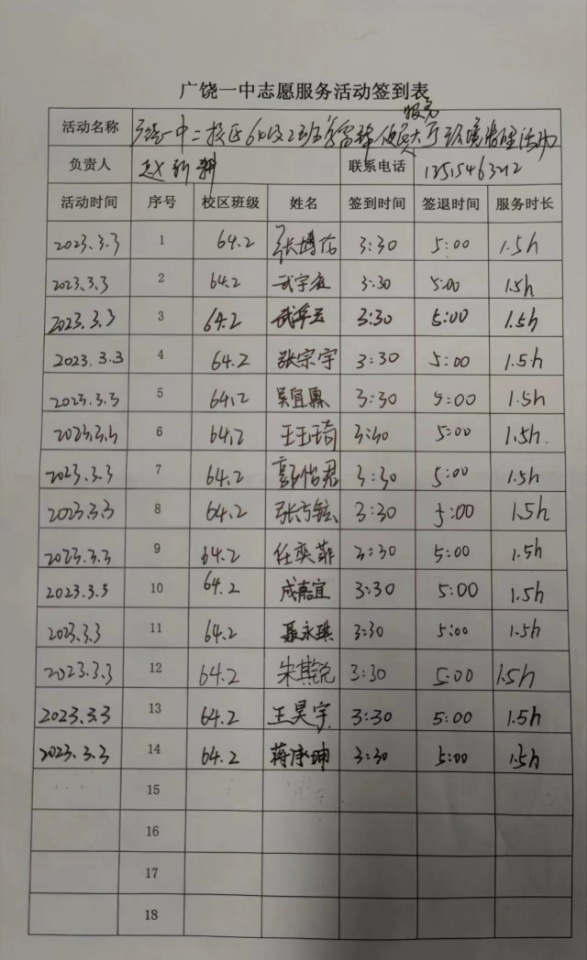 广饶一中志愿服务活动签到表
服务
活动名称 广饶一中二校区64级2班学雷锋便民大厅环境清理活动
负责人 赵 联系电话
活动时间 序号 校区班级 姓名 签到时间 签退时间 服务时长
2023.3.3 1 64.2 张博佑 3:30 5:00 1.5h
2023.3.3 2 64.2 武宇 3:30 5:00 1.5h
2023.3.3 3 64.2 武 3:30 5:00 1.5h
2023.3.3 4 64.2 张宗宇 3:30 5:00 1.5h
2023.3.3 5 64.2 吴宜 3:30 5:00 1.5h
2023.3.3 6 64.2 王玉琦 3:30 5:00 1.5h.
2023.3.3 7 64.2 怡君 3:30 5:00 1.5h
2023.3.3 8 64.2 张 3:30 5:00 1.5h
2023.3.3 9 64.2 任奕菲 3:30 5:00 1.5h
2023.3.3 10 64.2 成嘉宜 3:30 5:00 1.5h
2023.3.3 11 64.2 聂永琪 3:30 5:00 1.5h
2023.3.3 12 64.2 朱其锐 3:30 5:00 1.5h
2023.3.3 13 64.2 王昊宇 3:30 5:00 1.5h
2023.3.3 14 64.2 蒋 坤 3:30 5:00 1.5h
15
16
17
18